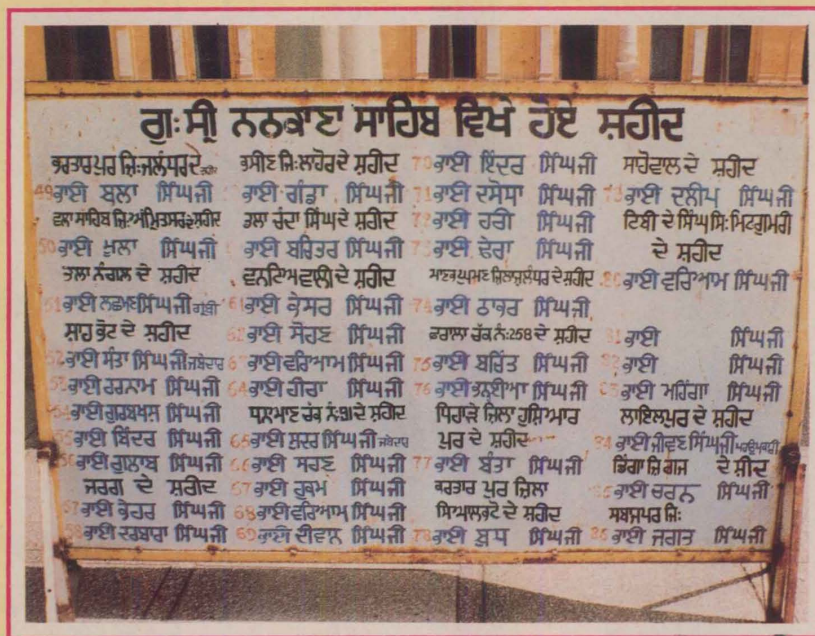 ਗੁ: ਸ੍ਰੀ ਨਨਕਾਣਾ ਸਾਹਿਬ ਵਿਖੇ ਹੋਏ ਸ਼ਹੀਦ
ਕਰਤਾਰਪੁਰ ਜ਼ਿ:ਜਲੰਧਰ ਦੇ
49 ਭਾਈ ਬੁਲਾ ਸਿੰਘ ਜੀ
ਵਲਾ ਸਾਹਿਬ ਜ਼ਿ:ਅੰਮ੍ਰਿਤਸਰ ਦੇ ਸ਼ਹੀਦ
50 ਭਾਈ ਖੁਲਾ ਸਿੰਘ ਜੀ
ਤਲਾ ਨੰਗਲ ਦੇ ਸ਼ਹੀਦ
51 ਭਾਈ ਲਛਮਣ ਸਿੰਘ ਜੀ
ਸ਼ਾਹ ਕੋਟ ਦੇ ਸ਼ਹੀਦ
52 ਭਾਈ ਸੰਤਾ ਸਿੰਘ ਜੀ ਜਥੇਦਾਰ
53 ਭਾਈ ਹਰਨਾਮ ਸਿੰਘ ਜੀ
54 ਭਾਈ ਗੁਰਬਖਸ਼ ਸਿੰਘ ਜੀ
55 ਭਾਈ ਬਿੰਦਰ ਸਿੰਘ ਜੀ
56 ਭਾਈ ਗੁਲਾਬ ਸਿੰਘ ਜੀ
ਜਰਗ ਦੇ ਸ਼ਹੀਦ
57 ਭਾਈ ਕੇਹਰ ਸਿੰਘ ਜੀ
58 ਭਾਈ ਦਰਬਾਰਾ ਸਿੰਘ ਜੀ
ਤਸੀਣ ਜ਼ਿ:ਲਾਹੌਰ ਦੇ ਸ਼ਹੀਦ
ਭਾਈ ਗੰਡਾ ਸਿੰਘ ਜੀ
ਤਲਾ ਚੰਦਾ ਸਿੰਘ ਦੇ ਸ਼ਹੀਦ
ਭਾਈ ਬਚਿਤਰ ਸਿੰਘ ਜੀ
ਦੇ ਸ਼ਹੀਦ
61 ਭਾਈ ਕੇਸਰ ਸਿੰਘ ਜੀ
62 ਭਾਈ ਸੋਹਣ ਸਿੰਘ ਜੀ
63 ਭਾਈ ਵਰਿਆਮ ਸਿੰਘ ਜੀ
64 ਭਾਈ ਹੀਰਾ ਸਿੰਘ ਜੀ
ਧਨਮਾਣ ਚੱਕ ਨੰ:91 ਦੇ ਸ਼ਹੀਦ
65 ਭਾਈ ਸੁਦਰ ਸਿੰਘ ਜੀ ਜਥੇਦਾਰ
66 ਭਾਈ ਸਰਣ ਸਿੰਘ ਜੀ
67 ਭਾਈ ਹੁਕਮ ਸਿੰਘ ਜੀ
68 ਭਾਈ ਵਰਿਆਮ ਸਿੰਘ ਜੀ
69 ਭਾਈ ਦੀਵਾਨ ਸਿੰਘ ਜੀ
70 ਭਾਈ ਇੰਦਰ ਸਿੰਘ ਜੀ
71 ਭਾਈ ਦਸੋਧਾ ਸਿੰਘ ਜੀ
72 ਭਾਈ ਹਰੀ ਸਿੰਘ ਜੀ
73 ਭਾਈ ਢੇਰਾ ਸਿੰਘ ਜੀ
ਮਾਣਕ ਘੁਮਣ ਜ਼ਿਲਾ ਜੁਲੰਧਰ ਦੇ ਸ਼ਹੀਦ
74 ਭਾਈ ਠਾਕਰ ਸਿੰਘ ਜੀ
ਕਰਾਲਾ ਚੱਕ ਨੰ:258 ਦੇ ਸ਼ਹੀਦ
75 ਭਾਈ ਬਚਿੰਤ ਸਿੰਘ ਜੀ
76 ਭਾਈ ਘਨਈਆ ਸਿੰਘ ਜੀ
ਜ਼ਿਲਾ ਹੁਸ਼ਿਆਰ
ਪੁਰ ਦੇ ਸ਼ਹੀਦ
77 ਭਾਈ ਬੰਤਾ ਸਿੰਘ ਜੀ
ਕਰਤਾਰ ਪੁਰ ਜ਼ਿਲਾ
ਸਿਆਲਕੋਟ ਦੇ ਸ਼ਹੀਦ
78 ਭਾਈ ਬੁਧ ਸਿੰਘ ਜੀ
ਸਾਹੋਵਾਲ ਦੇ ਸ਼ਹੀਦ
79 ਭਾਈ ਦਲੀਪ ਸਿੰਘ ਜੀ
ਟਿਬੀ ਦੇ ਸਿੰਘ ਜਿ: ਮਿਟਗੁਮਰੀ
ਦੇ ਸ਼ਹੀਦ
80 ਭਾਈ ਵਰਿਆਮ ਸਿੰਘ ਜੀ
81 ਭਾਈ ਸਿੰਘ ਜੀ
82 ਭਾਈ ਸਿੰਘ ਜੀ
83 ਭਾਈ ਮਹਿੰਗਾ ਸਿੰਘ ਜੀ
ਲਾਇਲਪੁਰ ਦੇ ਸ਼ਹੀਦ
84 ਭਾਈ ਜੀਵਣ ਸਿੰਘ ਜੀ
ਡਿੰਗਾ ਜ਼ਿ ਗੁਜ ਦੇ ਸ਼ੀਦ
85 ਭਾਈ ਚਰਨ ਸਿੰਘ ਜੀ
86 ਭਾਈ ਜਗਤ ਸਿੰਘ ਜੀ